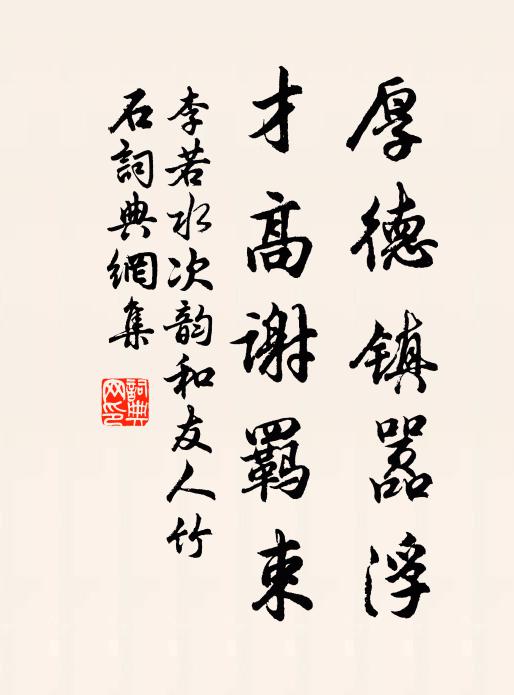 厚德镇嚣浮
才高谢羁束
李若水次韵和友人竹
石詞典網集
詞典网印